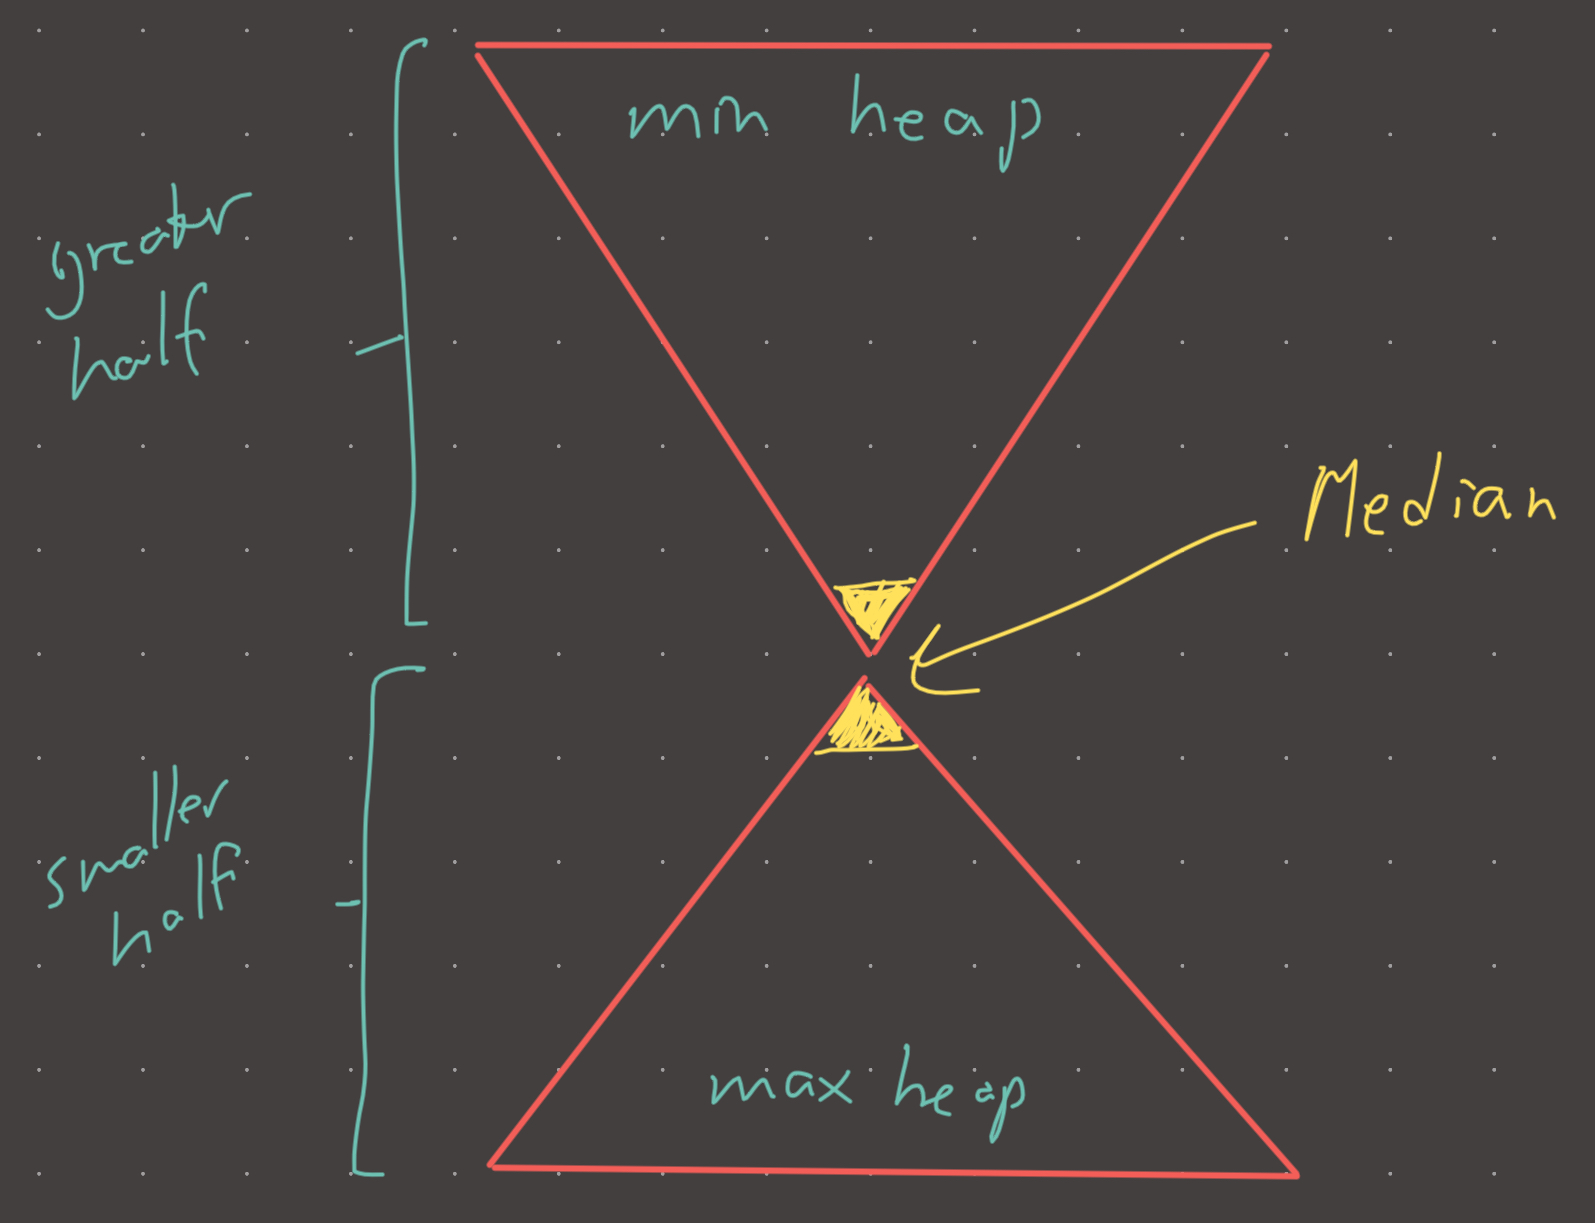 min heap
greater
half
Median
smaller
half
max heap